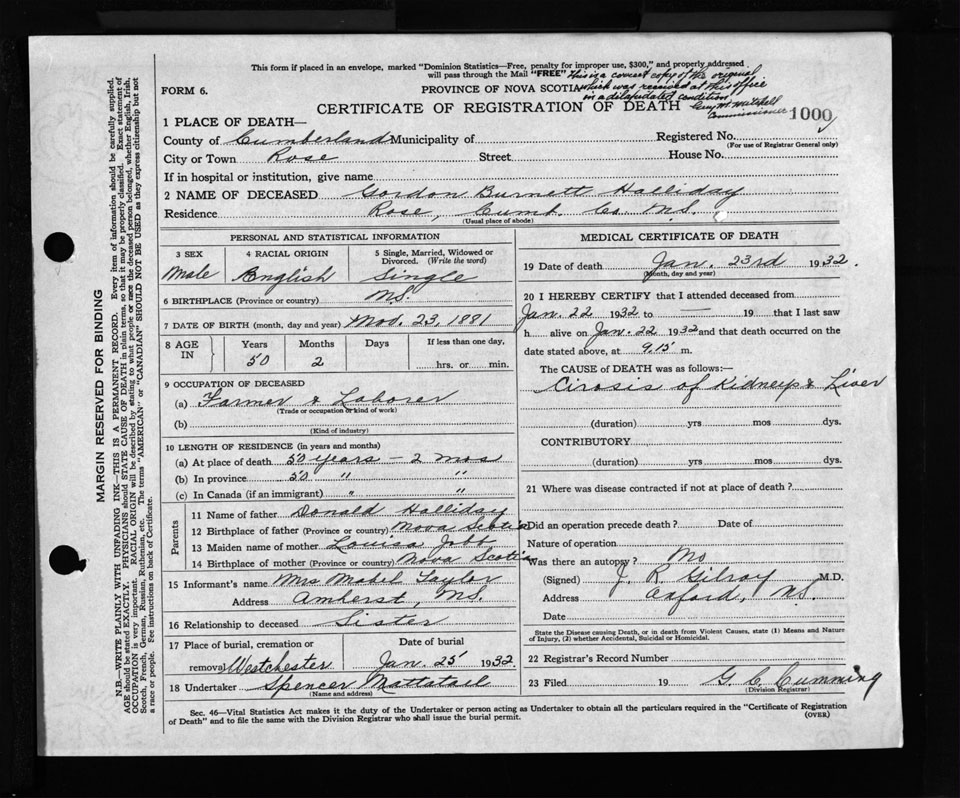 This form if placed in an envelope, marked "Dominion Statistics—Free, penalty for improper use, $300," and properly addressed
will pass through the Mail "FREE" This is a correct copy of the original
FORM 6. PROVINCE OF NOVA SCOTIA which was received at this office
in a dilapidated condition
CERTIFICATE OF REGISTRATION OF DEATH Geo. M. Mitchell
Commissioner 1000
1 PLACE OF DEATH—
County of Cumberland Municipality of Registered No.
(For use of Registrar General only)
City or Town Rose Street House No.
If in hospital or institution, give name
2 NAME OF DECEASED Gordon Burnett Halliday
Residence Rose, Cumb. Co. N.S.
(Usual place of abode)
PERSONAL AND STATISTICAL INFORMATION
3 SEX 4 RACIAL ORIGIN 5 Single, Married, Widowed or
Divorced. (Write the word)
Male English Single
6 BIRTHPLACE (Province or country) N.S.
7 DATE OF BIRTH (month, day and year) Nov. 23, 1881
8 AGE IN Years Months Days If less than one day,
50 2 hrs. or min.
9 OCCUPATION OF DECEASED
(a) Farmer & Laborer
(Trade or occupation or kind of work)
(b)
(Kind of industry)
10 LENGTH OF RESIDENCE (in years and months)
(a) At place of death 50 years – 2 mos
(b) In province 50 " "
(c) In Canada (if an immigrant) " "
Parents
11 Name of father Donald Halliday
12 Birthplace of father (Province or country) Nova Scotia
13 Maiden name of mother Louisa Jobb
14 Birthplace of mother (Province or country) Nova Scotia
15 Informant's name Mrs Mabel Taylor
Address Amherst, N.S.
16 Relationship to deceased Sister
17 Place of burial, cremation or Date of burial
removal Westchester Jan. 25 1932
18 Undertaker Spencer Mattatall
(Name and address)
MEDICAL CERTIFICATE OF DEATH
19 Date of death Jan. 23rd 1932.
(Month, day and year)
20 I HEREBY CERTIFY that I attended deceased from
Jan. 22 1932 to — 19 that I last saw
h alive on Jan. 22 1932 and that death occurred on the
date stated above, at 9.15 m.
The CAUSE of DEATH was as follows:—
Cirosis of Kidneys & Liver
(duration) yrs mos dys.
CONTRIBUTORY
(duration) yrs mos dys.
21 Where was disease contracted if not at place of death ?
Did an operation precede death ? Date of
Nature of operation
Was there an autopsy ? No
(Signed) J. R. Gilroy M.D.
Address Oxford, N.S.
Date
State the Disease causing Death, or in death from Violent Causes, state (1) Means and Nature
of Injury, (2) whether Accidental, Suicidal or Homicidal.
22 Registrar's Record Number
23 Filed 19 G. C. Cumming
(Division Registrar)
Sec. 46—Vital Statistics Act makes it the duty of the Undertaker or person acting as Undertaker to obtain all the particulars required in the "Certificate of Registration
of Death" and to file the same with the Division Registrar who shall issue the burial permit. (OVER)
MARGIN RESERVED FOR BINDING
N.B.—WRITE PLAINLY WITH UNFADING INK—THIS IS A PERMANENT RECORD. Every item of information should be carefully supplied.
AGE should be stated EXACTLY. PHYSICIANS should STATE CAUSE OF DEATH in plain terms, so that it may be properly classified. Exact statement of
OCCUPATION is very important. RACIAL ORIGIN will be described by stating to what people or race the deceased person belonged, whether English, Irish,
Scotch, French, German, Russian, Ruthenian, etc. The terms "AMERICAN" or "CANADIAN" SHOULD NOT BE USED as they express citizenship but not
a race or people. See instructions on back of Certificate.